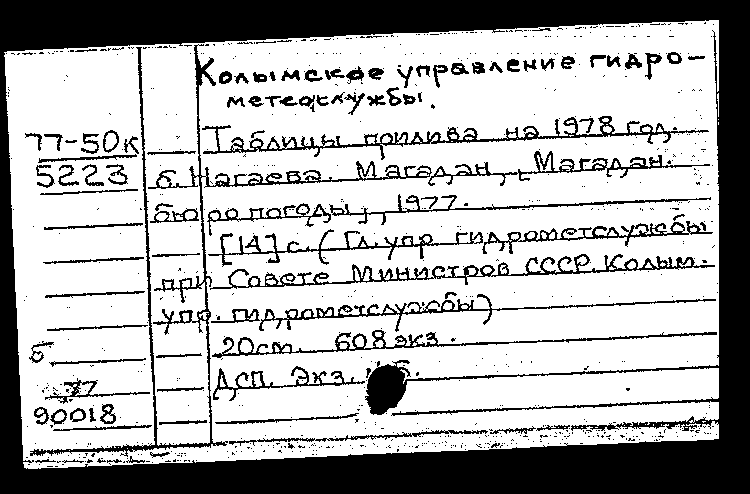 Колымское управление гидро-
метеослужбы.
77-50к Таблицы прилива на 1978 год.
5223 б. Нагаева. Магадан, Магадан.
бюро погоды, 1977.
[14] с. (Гл. упр. гидрометслужбы
при Совете Министров СССР. Колым.
упр. гидрометслужбы)
б. 20см. 608 экз.
77 ДСП. Экз.
90018